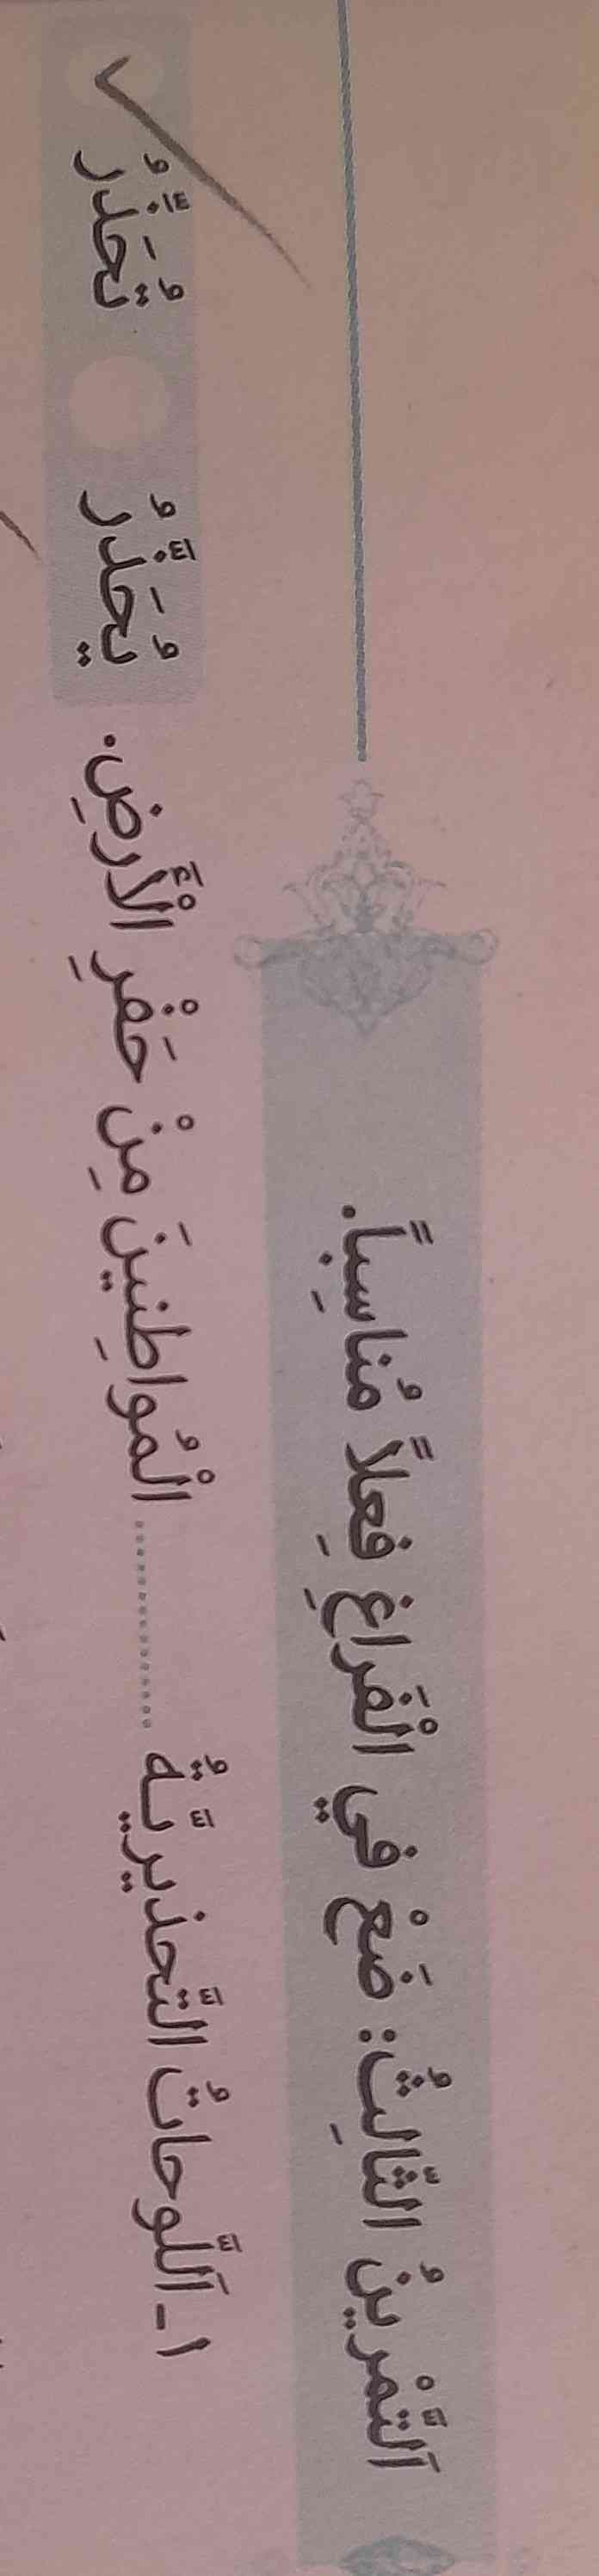 اَلتَّمْرينُ الثّالِثُ: ضَعْ في الْفَراغِ فِعلاً مُناسِباً.
١ـ اَللَّوحاتُ التَّحذيريَّةُ ............ الْمُواطِنينَ مِنْ حَفْرِ الْأَرضِ. يُحَذِّرُ تُحَذِّرُ